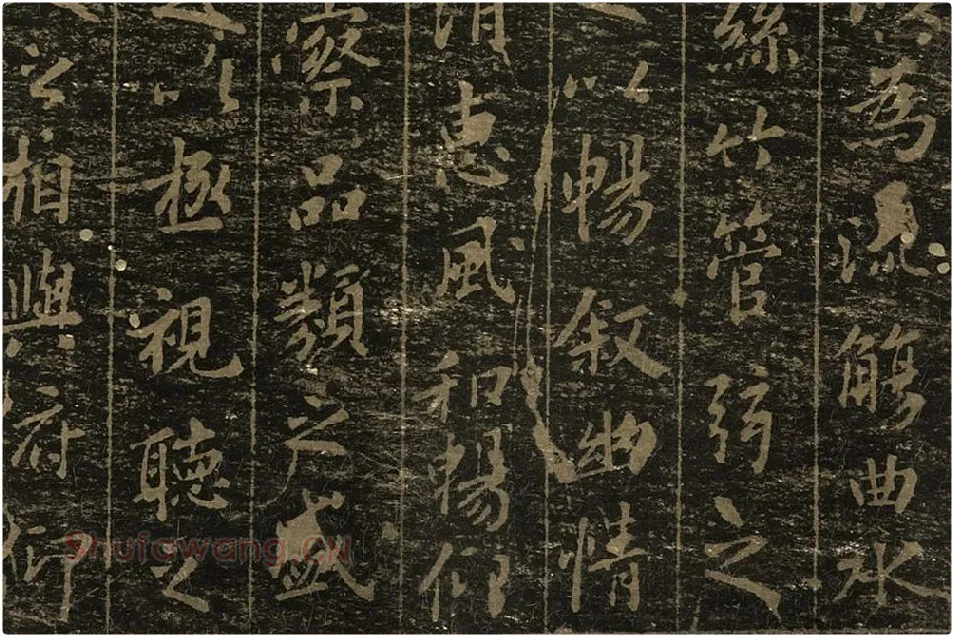 以為流觴曲水
絲竹管弦之
以暢叙幽情
清惠風和暢仰
察品類之盛
以極視聽之
之相與俯仰
Shufawang.CN